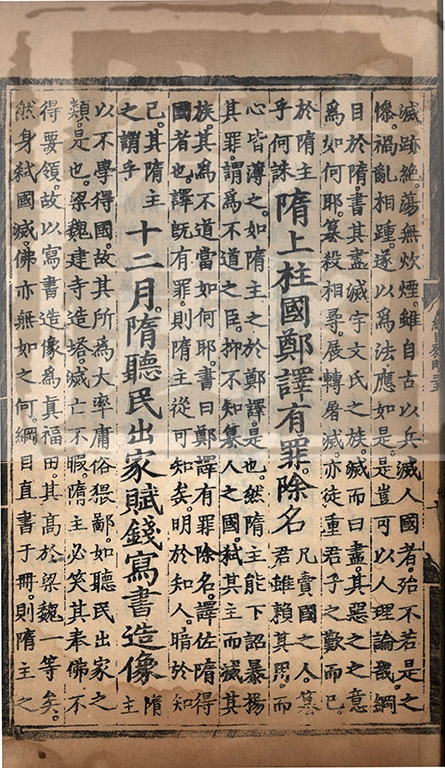 滅跡絶。蕩無炊煙。雖自古以兵滅人國者。殆不若是之
慘。禍亂相踵。遂以為法應如是。是豈可以人理論哉。綱
目於隋。書其盡滅宇文氏之族。滅而曰盡。其惡之之意
為如何耶。簒殺相尋。展轉屠滅。亦徒重君子之歎而已。
於隋主
乎何誅
隋上柱國鄭譯有罪除名
凡賣國之人。簒
君雖賴其用。而
心皆薄之。如隋主之於鄭譯。是也。然隋主能下詔暴揚
其罪。謂為不道之臣。抑不知簒人之國。弑其主而滅其
族。其為不道當如何耶。書曰鄭譯有罪除名。譯佐隋得
國者也。譯既有罪。則隋主從可知矣。明於知人。暗於知
己。其隋主
之謂乎
十二月。隋聽民出家賦錢寫書造像
隋
主
以不學得國。故其所為大率庸俗猥鄙。如聽民出家之
類。是也。梁魏建寺造塔。滅亡不暇。隋主必笑其奉佛不
得要領。故以寫書造像為真福田。其高於梁魏一等矣。
然身弑國滅。佛亦無如之何。綱目直書于冊。則隋主之